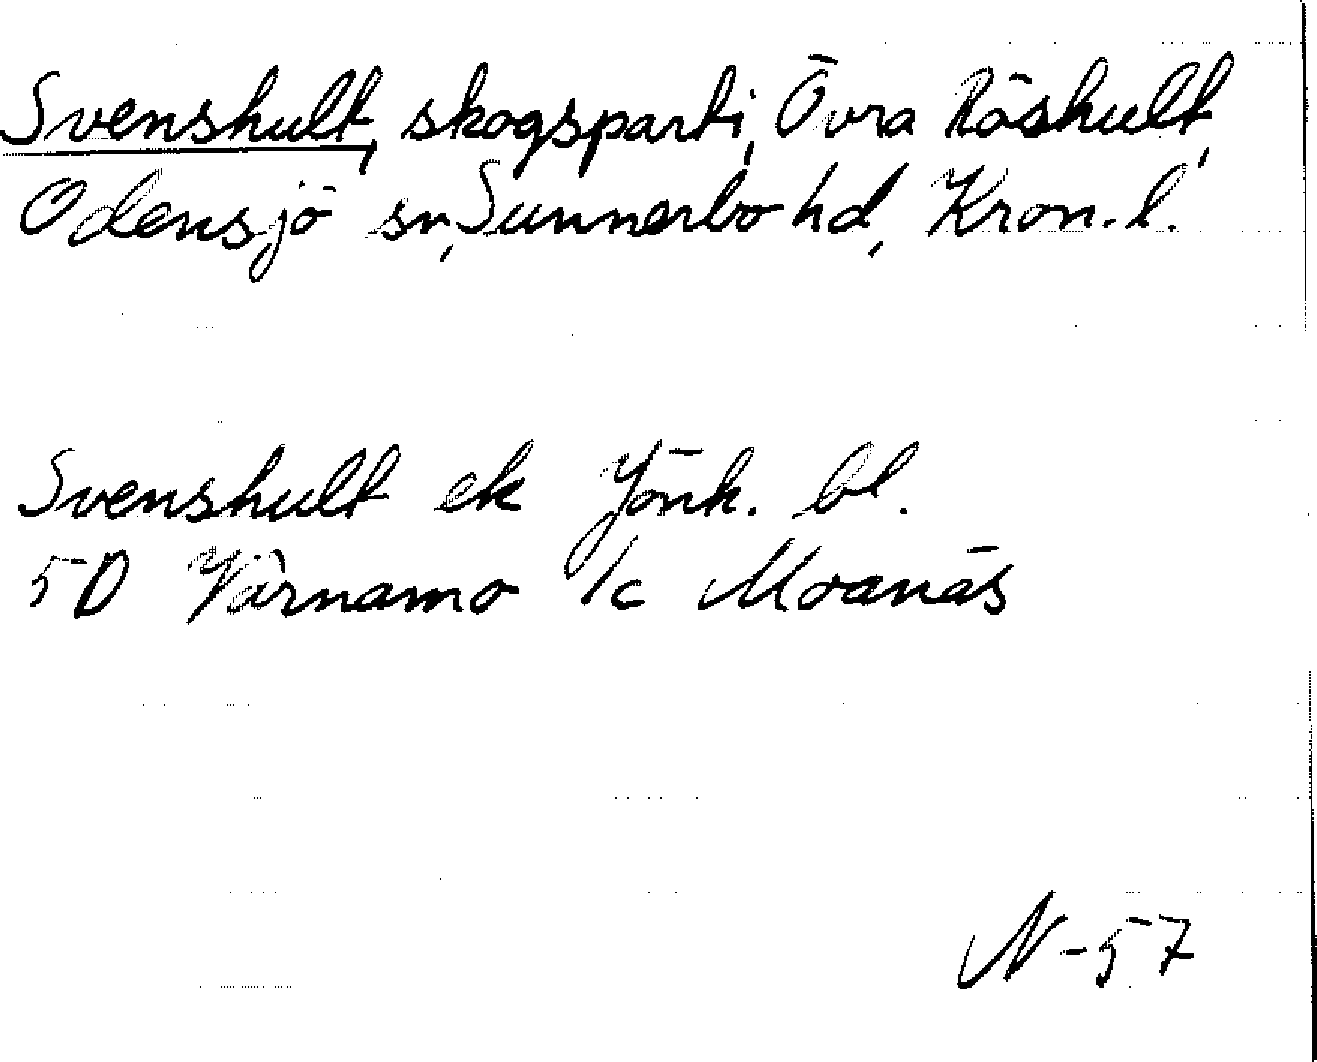 Svenshult, skogsparti, Övra Röshult,
Odensjö sn, Sunnerbo hd, Kron. l.
Svenshult ek Jönk. bl.
5D Värnamo 1/c Moanäs
N-57